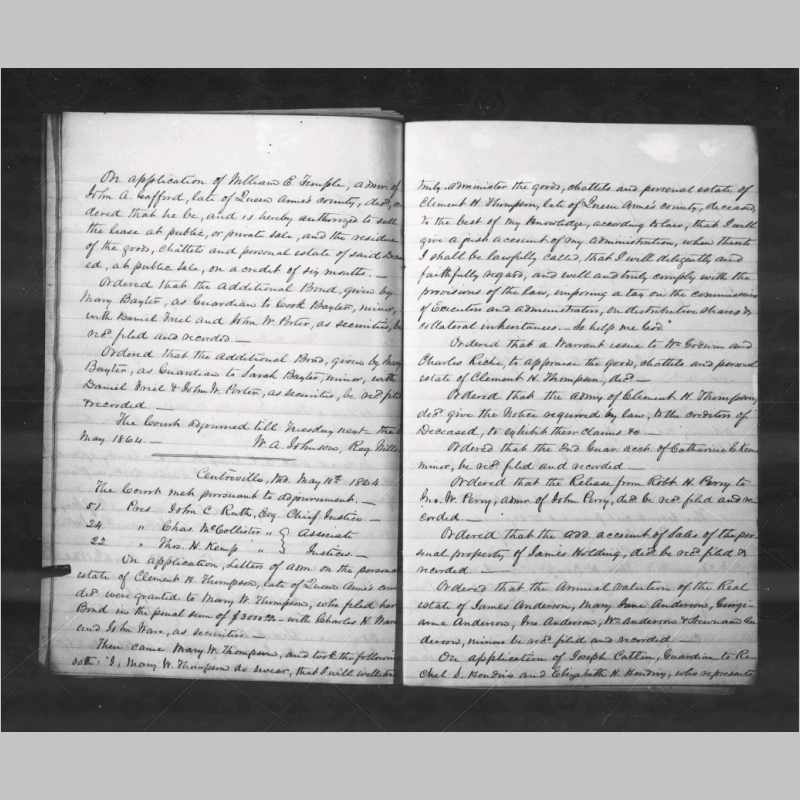 On application of William E. Temple, admr. of
John A. Gafford, late of Queen Anne's county, decd, or
dered that he be, and is hereby authorized to sell
the lease at public, or private sale, and the residue
of the goods, chattels and personal estate of said Deceas
ed, at public sale, on a credit of six months. —
Ordered that the Additional Bond, given by
Mary Baxter, as Guardian to Cook Baxter, minor,
with Daniel Friel and John W. Porter, as securities, be
recd filed and recorded —
Ordered that the additional Bond, given by Mary
Baxter, as Guardian to Sarah Baxter, minor, with
Daniel Friel & John W. Porter, as securities, be recd filed
& recorded —
The Court adjourned till Tuesday next — the
May 1864 — W. A. Johnson, Reg. Wills
Centreville, Md. May 10th 1864
The Court met pursuant to adjournment. —
51 Pres John C. Ruth, Esq. Chief Justice —
24 " Chas. McCollister " } Associate
22 " Thos. H. Kemp " } Justices —
On application, Letters of adm on the personal
estate of Clement H. Thompson, late of Queen Anne's coun
decd were granted to Mary W. Thompson, who filed her
Bond in the penal sum of $3000.00 — with Charles H. Ware
and John Ware, as securities —
Then came Mary W. Thompson, and took the following
oath: "I, Mary W. Thompson do swear, that I will well and
truly administer the goods, chattels and personal estate of
Clement H. Thompson, late of Queen Anne's county, deceased,
to the best of my knowledge, according to law, that I will
give a just account of my administration, when thereto
I shall be lawfully called, that I will diligently and
faithfully regard, and well and truly comply with the
provisions of the law, imposing a tax on the commissions
of Executors and administrators, on distributive shares &
collateral inheritances. — So help me God"
Ordered that a Warrant issue to Wm
Charles Riche, to appraise the goods, chattels and personal
estate of Clement H. Thompson, decd —
Ordered that the admx of Clement H. Thompson,
decd give the Notice required by law, to the creditors of
Deceased, to exhibit their claims &c —
Ordered that the 2nd Guar. acct. of Catharine E.
minor, be recd filed and recorded —
Ordered that the Release from Robt H. Perry to
Jno. W. Perry, admr. of John Perry, decd, be recd filed and re
corded —
Ordered that the add account of Sales of the per
sonal property of James Holding, decd, be recd filed &
recorded —
Ordered that the Annual Valuation of the Real
estate of James Anderson, Mary Jane Anderson, Georgi
anna Anderson, Jno Anderson, Wm Anderson & An
derson, minors be recd filed and recorded —
On application of Joseph Catlin, Guardian to Ra
chel S. and Elizabeth H. who represents